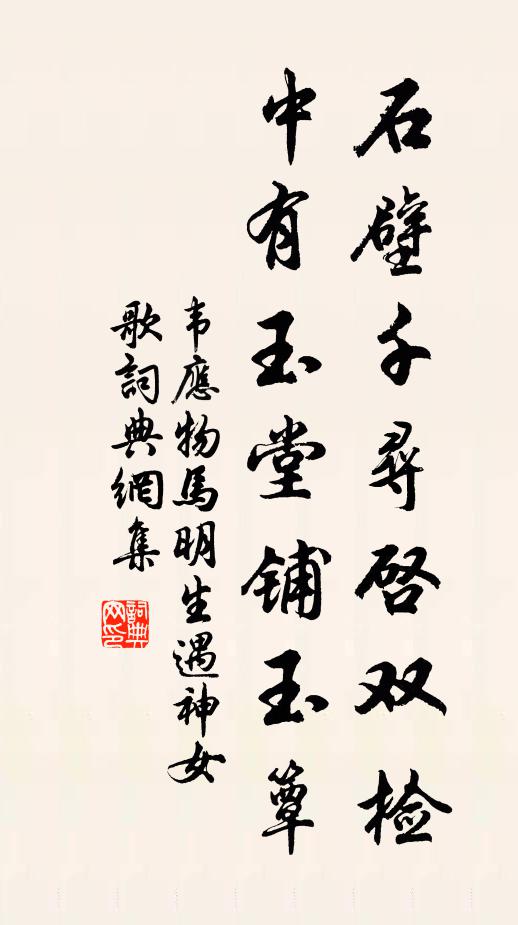 石壁千尋啓双检
中有玉堂铺玉簟
韦應物馬明生遇神女
歌詞典網集
詞典网印